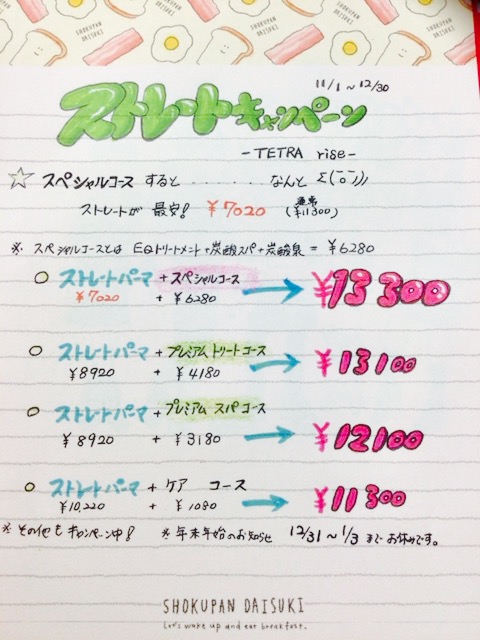 SHOKUPAN DAISUKI
11/1～12/30
ストレートキャンペーン
-TETRA rise-
☆ スペシャルコース すると........なんと Σ(ˉoˉ;)))
ストレートが 最安! ¥7020 通常(¥11300)
※ スペシャルコースとは EQトリートメント+炭酸スパ+炭酸泉 = ¥6280
○ ストレートパーマ + スペシャルコース → ¥13300
¥7020 + ¥6280
○ ストレートパーマ + プレミアムトリートコース → ¥13100
¥8920 + ¥4180
○ ストレートパーマ + プレミアムスパコース → ¥12100
¥8920 + ¥3180
○ ストレートパーマ + ケア コース → ¥11300
¥10,220 + ¥1080
※ その他もキャンペーン中! ※ 年末年始のお知らせ 12/31～1/3 までお休みです。
SHOKUPAN DAISUKI
Let's wake up and eat breakfast.